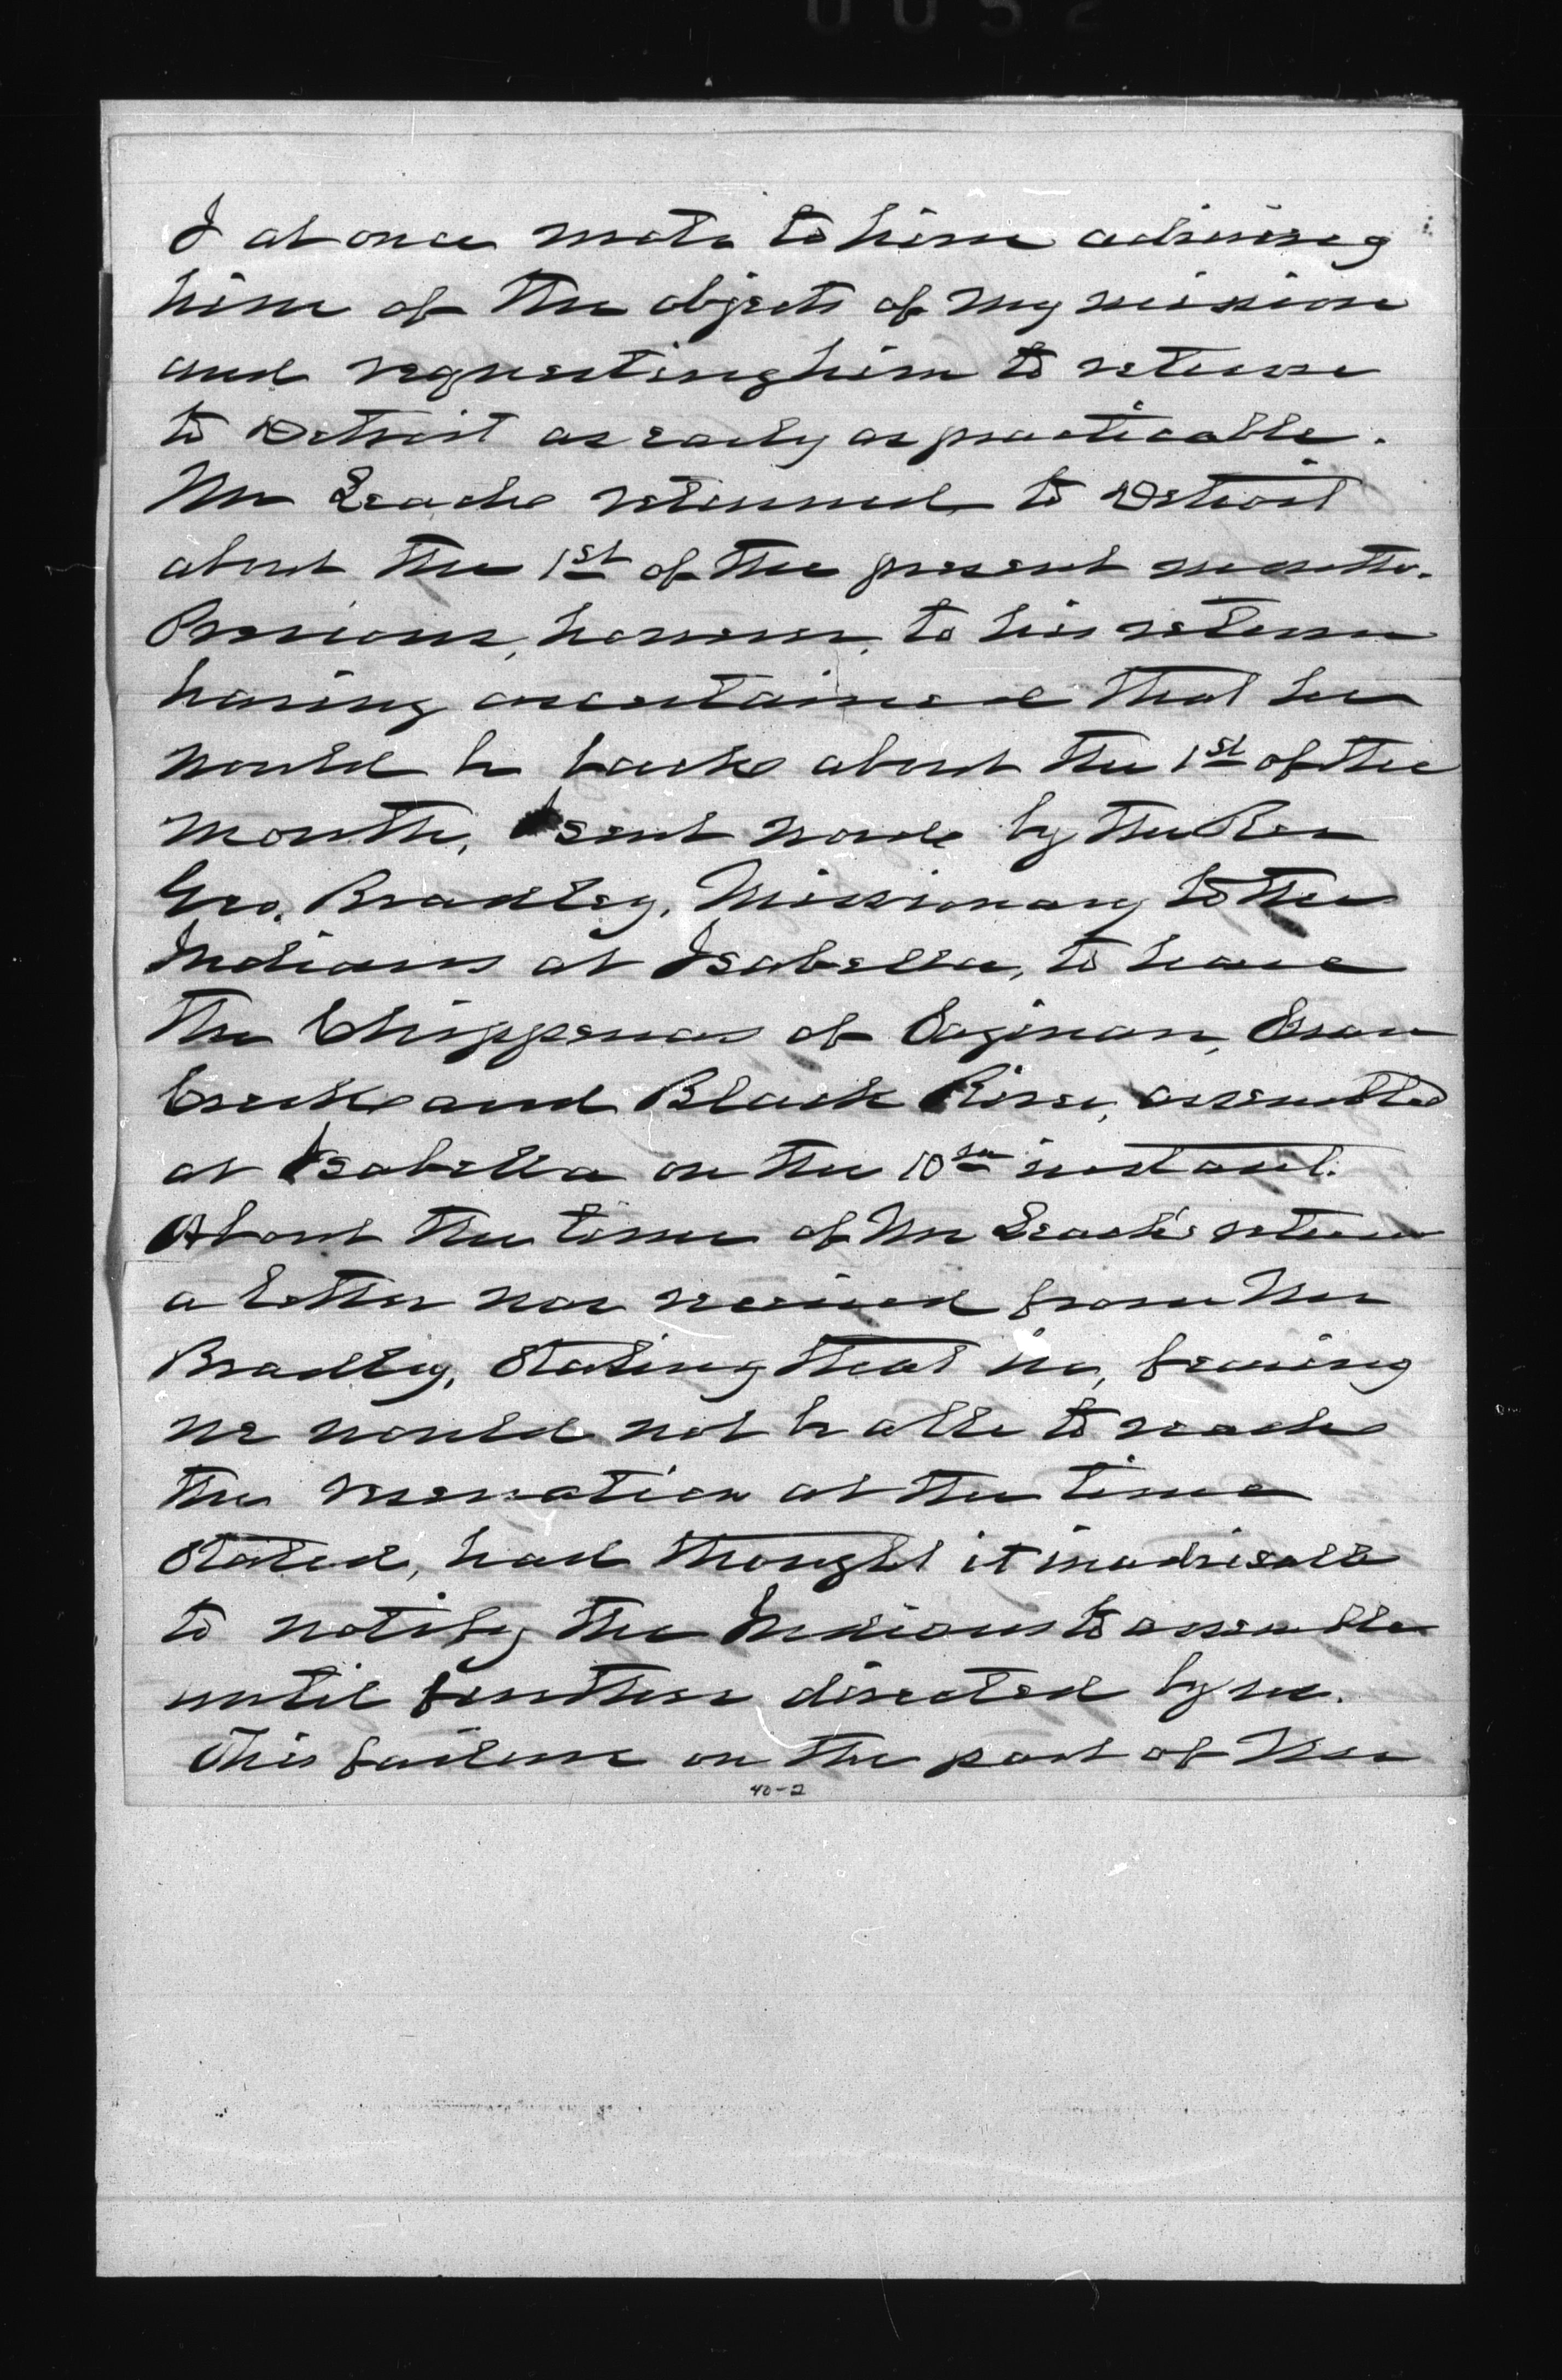 0052
I at once wrote to him advising
him of the objects of my mission
and requesting him to return
to Detroit as early as practicable.
Mr Leach returned to Detroit
about the 1st of the present month.
Previous, however, to his return
having ascertained that he
would be back about the 1st of the
month, I sent word by the Rev
Geo. Bradley, Missionary to the
Indians at Isabella, to have
the Chippewas of Saginaw, Swan
Creek and Black River, assembled
at Isabella on the 10th instant.
About the time of Mr Leach's return
a letter was received from Mr
Bradley, stating that he, fearing
we would not be able to reach
the reservation at the time
stated, had thought it inadvisable
to notify the Indians to assemble
until further directed by me.
This failure on the part of Mr
40-2